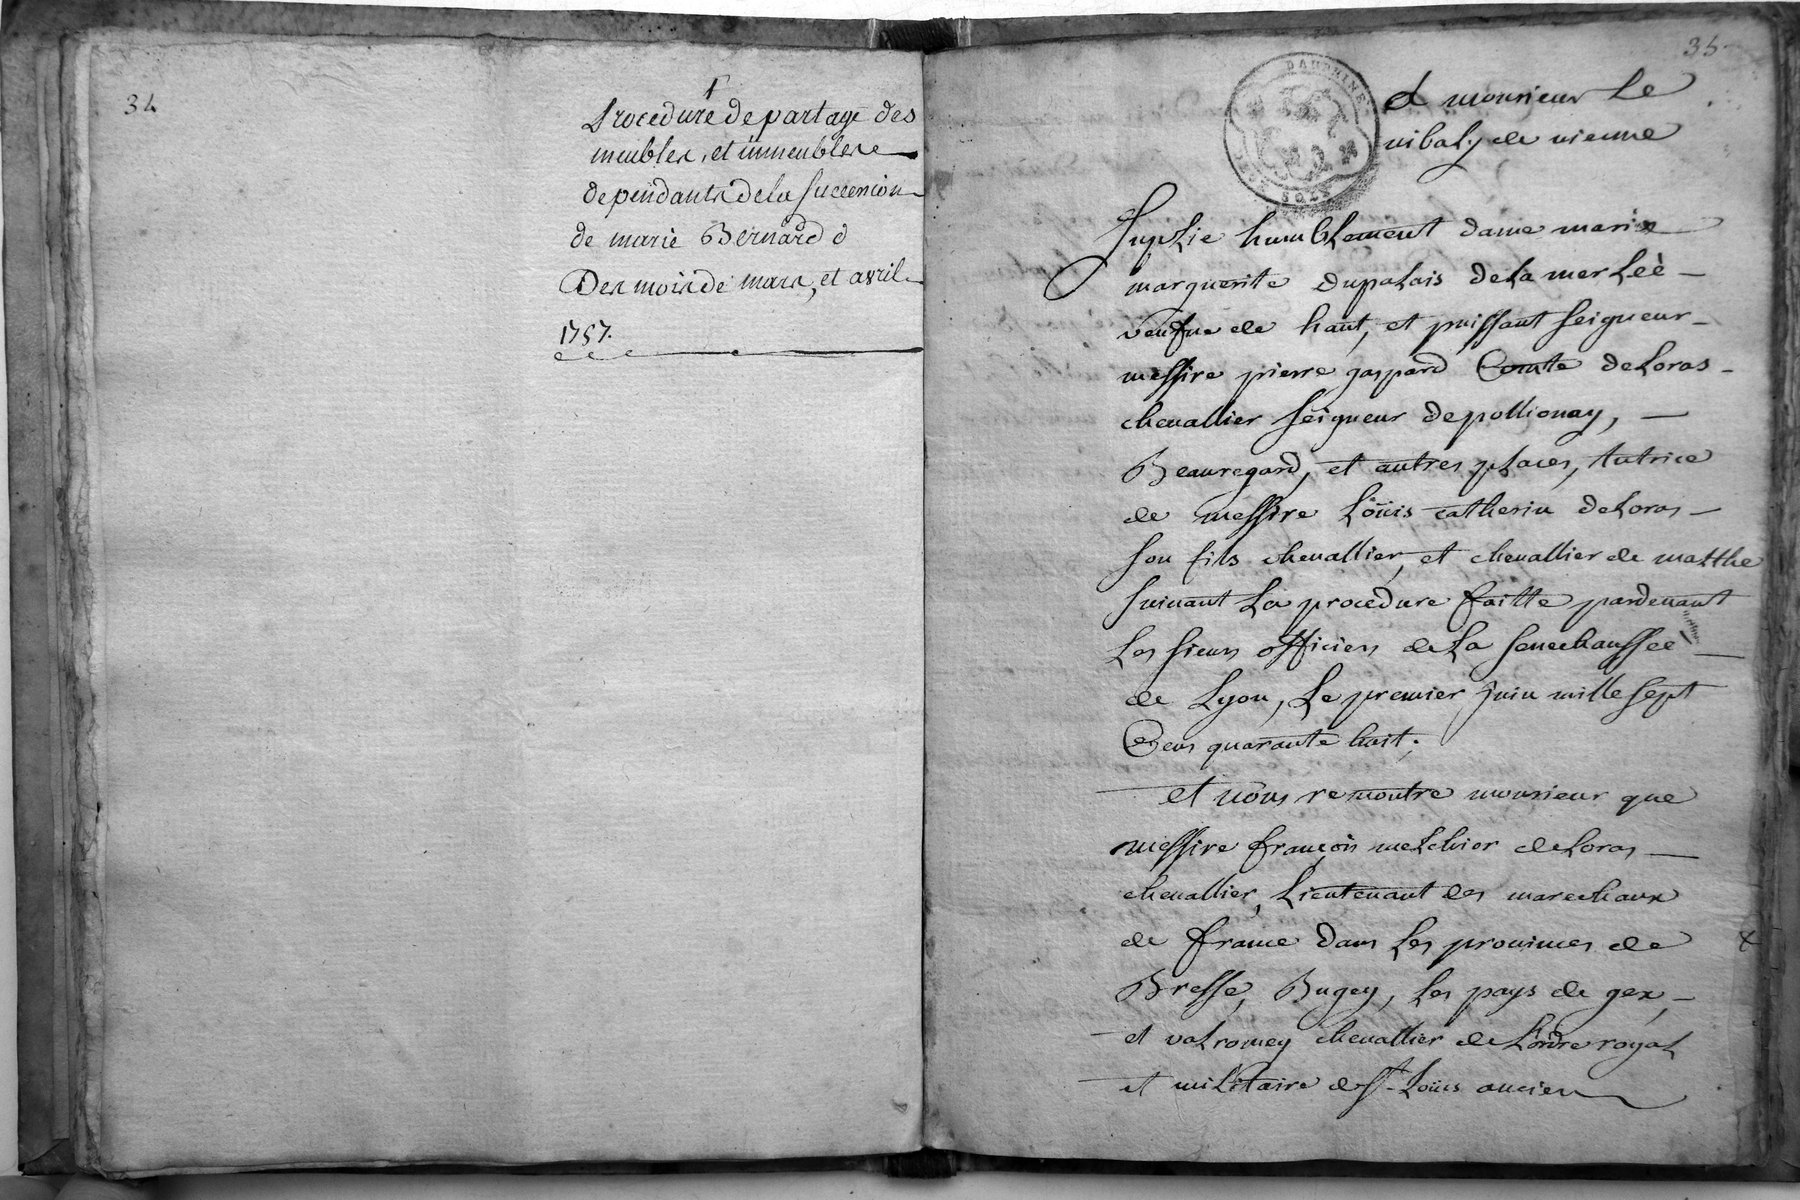 34
Procedure de partage des
meubles, et immeubles
dependants de la succession
de marie Bernard
Des mois de mars, et avril
1757.
35
DAUPHINE
DEUX SOLS
A monsieur Le
vibaly de vienne
Suplie humblement dame marie
marguerite dupalais de la merleè
veufve de haut, et puissant seigneur
messire pierre gaspard Comte deloras
chevallier seigneur depollionay,
Beauregard, et autres places, tutrice
de messire Loüis catherin deLoras
son fils chevallier, et chevallier de malthe
suivant La procedure faitte pardevant
Les sieurs officiers de La senechaussee
de Lyon, Le premier juin mille sept
Cens quarante huit;
et vous remontre monsieur que
messire françois melchior deLoras
chevallier, Lieutenant des marechaux
de france dans Les provinces de
Bresse, Bugey, Les pays de gex,
et valromey chevallier de Lordre royal
et militaire de St. Loüis ancien